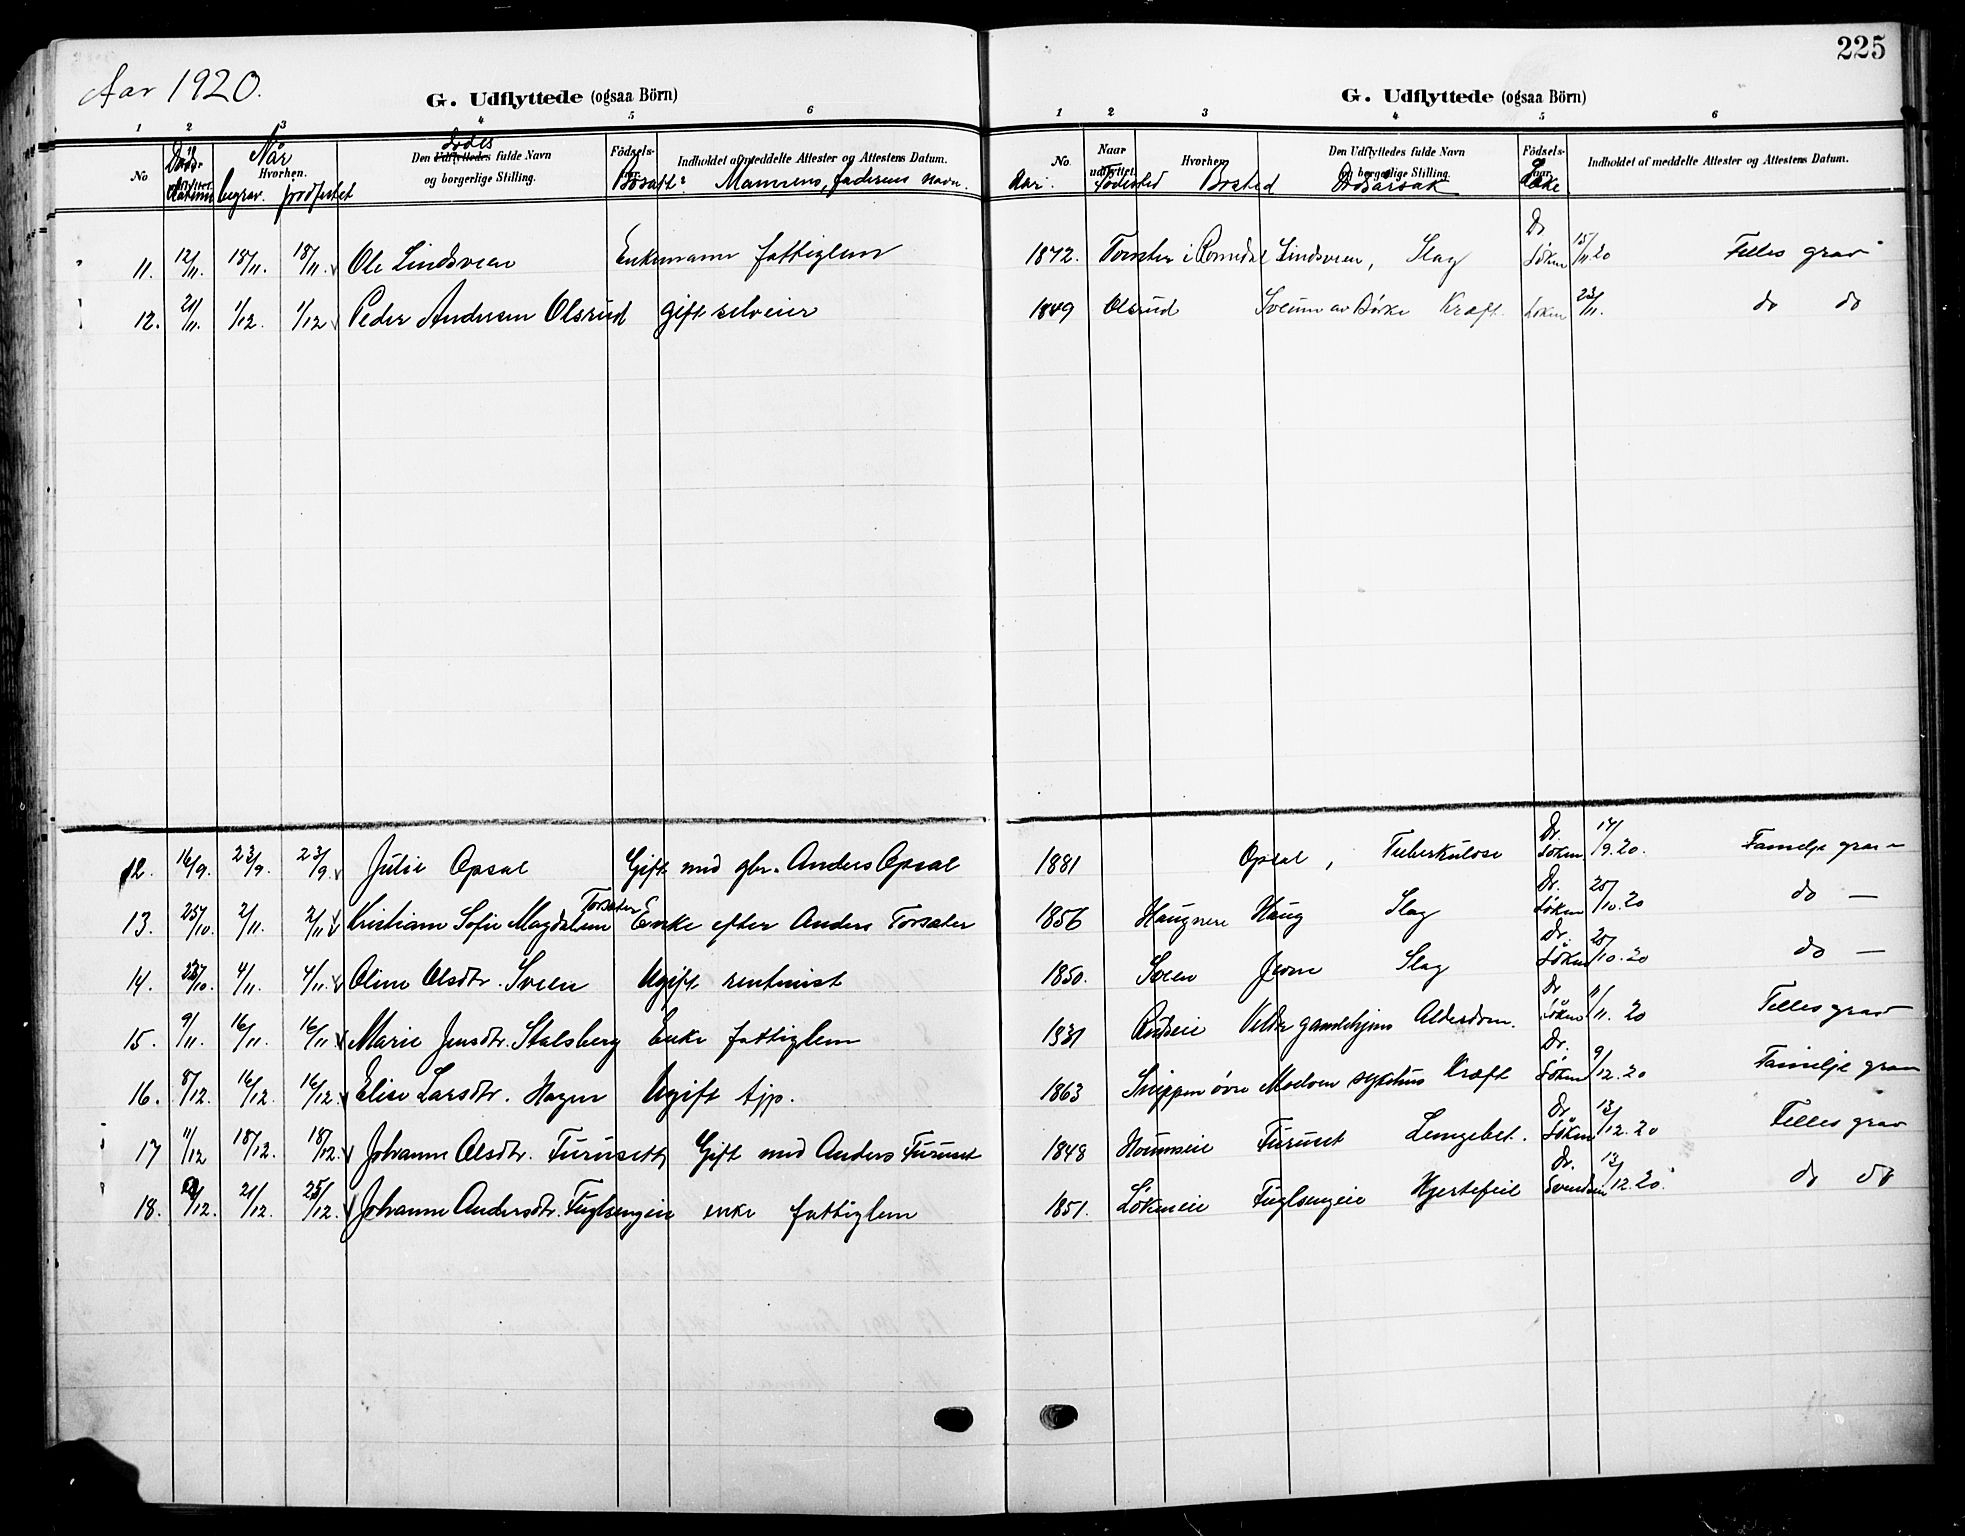 225
Aar 1920.
G. Udflyttede (ogsaa Börn)
G. Udflyttede (ogsaa Börn)
1 2 3 4 5 6
1 2 3 4 5 6
No Når Hvorhen. begrav. jordfestet Den Udflyttedes dødes fulde Navn og borgerlige Stilling. Födsels- Mannens, faderens navn. Indholdet af meddelte Attester og Attestens Datum.
Aar. No. Naar udflyttet. Fødested Hvorhen Bosted Den Udflyttedes fulde Navn og borgerlige Stilling. Dødsårsak Födsels-aar. Læke Indholdet af meddelte Attester og Attestens Datum.
11. 12/11. 18/11. 18/11. Ole Lindsveen Enkemann fattiglem 1872. i Romedal Lindsveen, Slag Dr Löken 15/11 20 Felles grav
12. 21/11. 1/12. 1/12 Peder Andersen Olsrud gift selveier 1849 Olsrud Sveum av Börke Kræft. Löken 23/11. do do
12. 16/9. 23/9. 23/9. Julie Opsal Gift med gbr. Anders Opsal 1881 Opsal, Tuberkulose Dr. Löken 17/9.20. Familje grav
13. 25/10. 2/11. 2/11 Kristiane Sofie Magdalene Torsæter Enke efter Anders Torsæter 1856 Haugnere Haug Slag Dr. Löken 25/10.20 do —
14. 23/10. 4/11. 4/11. Oline Olsdtr. Sveen Ugift rentenist 1850. Sveen Slag Dr. Löken 25/10.20 do —
15. 9/11. 16/11. 16/11 Marie Jensdtr. Stalsberg Enke fattiglem 1831 Rudseie Veldre gamlehjem Alderdom. Dr Löken 11/11. 20 Felles grav
16. 8/12. 16/12. 16/12. Elise Larsdtr. Hagen Ugift tjp. 1863 Snippen övre Moelven sykehus Kræft Dr. Löken 9/12.20 Familje grav
17 11/12 18/12. 18/12. Johanne Olsdtr. Furuseth Gift med Anders Furuset 1848 Furuset Lungebet. Dr Löken 13/12.20 Felles grav
18. /12. 21/12. 25/12. Johanne Andersdtr. Fuglsengeie enke fattiglem 1851. Lökeneie Fuglsengeie Hjertefeil Dr. Svendsen 13/12.20. do do